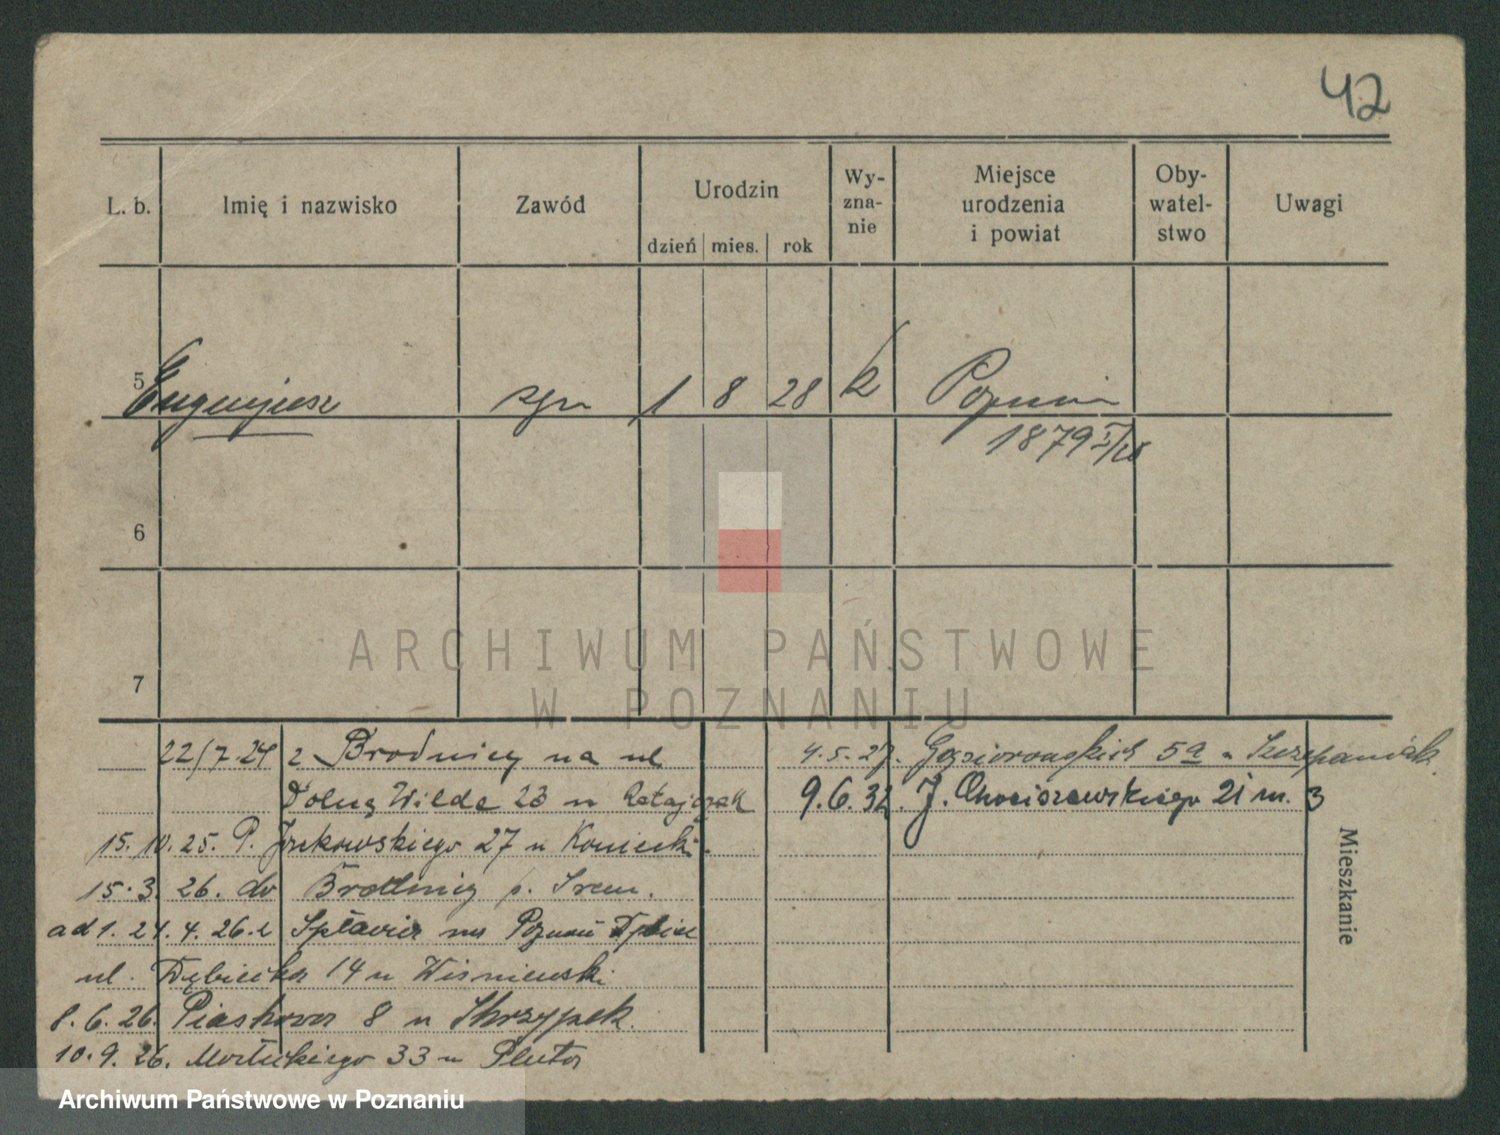 42
L. b. Imię i nazwisko Zawód Urodzin Wyznanie Miejsce urodzenia i powiat Obywatelstwo Uwagi
dzień mies. rok
5 Eugenjusz 1 8 28 k Poznań
1879
6
7
ARCHIWUM PAŃSTWOWE
W POZNANIU
22/7.24 z Brodnicy na ul
Dolną Wildę 23 u Ratajczak
15.10.25. P. 27 u Konieczki.
15.3.26. do Brodnicy p. Śrem.
ad 1. 21.4.26 z Spławia na Poznań Dębiec
ul. Dębiecka 14 u Wiśniewski.
8.6.26. Piaskowa 8 u Skrzypek.
10.9.26. 33 u Pluta
4.5.27. Gąsiorowskich 5a u Szczepaniak.
9.6.32. J. Chociszewskiego 21 m. 3
Mieszkanie
Archiwum Państwowe w Poznaniu